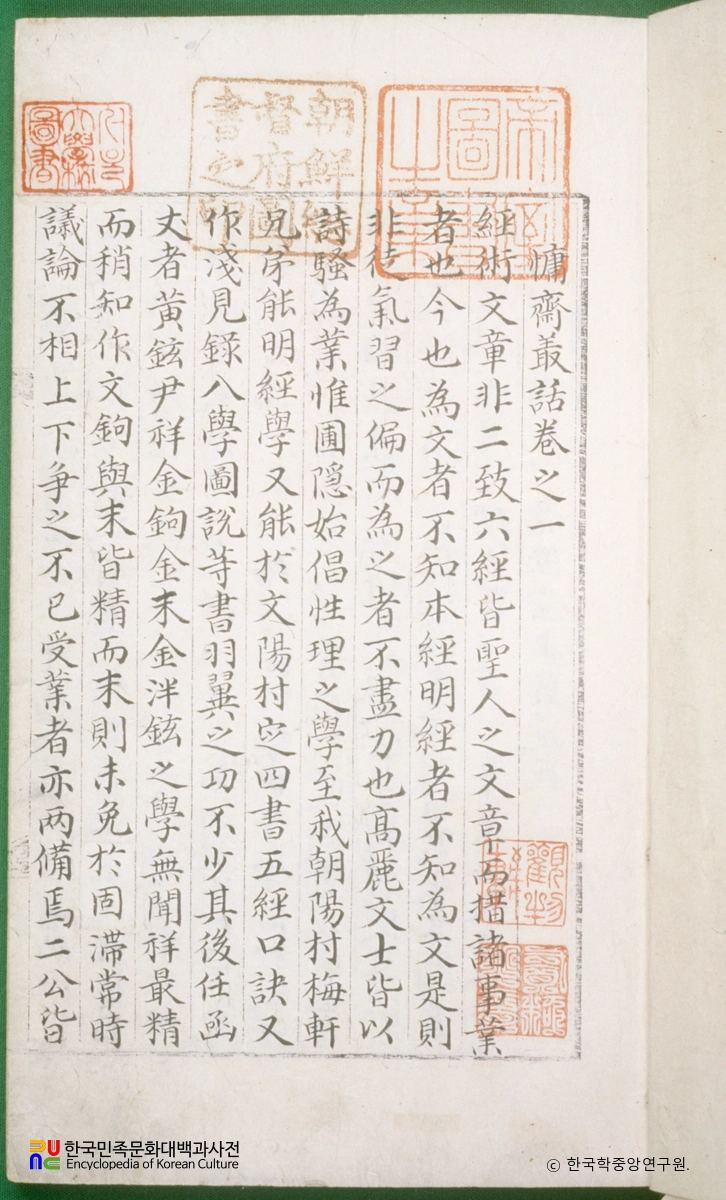 慵齋叢話卷之一
經術文章非二致六經皆聖人之文章而措諸事業
者也今也為文者不知本經明經者不知為文是則
非徒氣習之偏而為之者不盡力也高麗文士皆以
詩騷為業惟圃隱始倡性理之學至我朝陽村梅軒
兄弟能明經學又能於文陽村定四書五經口訣又
作淺見錄入學圖說等書羽翼之功不少其後任函
丈者黃鉉尹祥金鉤金末金泮鉉之學無聞祥最精
而稍知作文鉤與末皆精而末則未免於固滯常時
議論不相上下爭之不已受業者亦两備焉二公皆
帝室
圖書
之章
朝鮮總
督府圖
書之印
大學
圖書
한국민족문화대백과사전
Encyclopedia of Korean Culture
© 한국학중앙연구원.